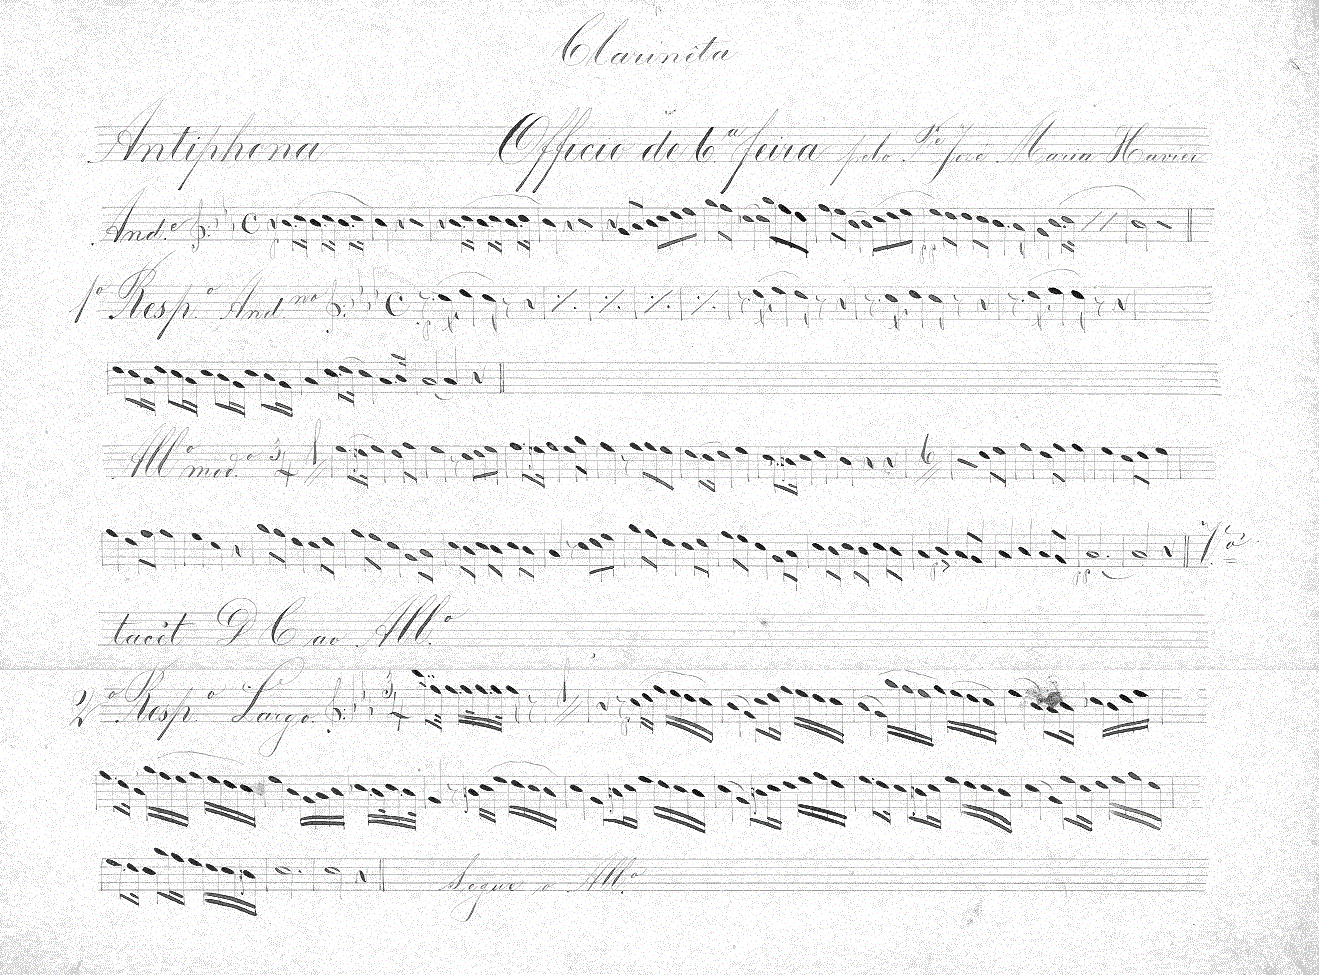 Clarineta
Antiphona Officio de 6.ª feira pelo P.e José Maria Xavier
And.e
1º Resp.º And.no
All.º mod.º 3/4 1
6
V.ª
tacit D C ao All.º
2º Resp.º Largo. 3/4 1
Segue o All.º